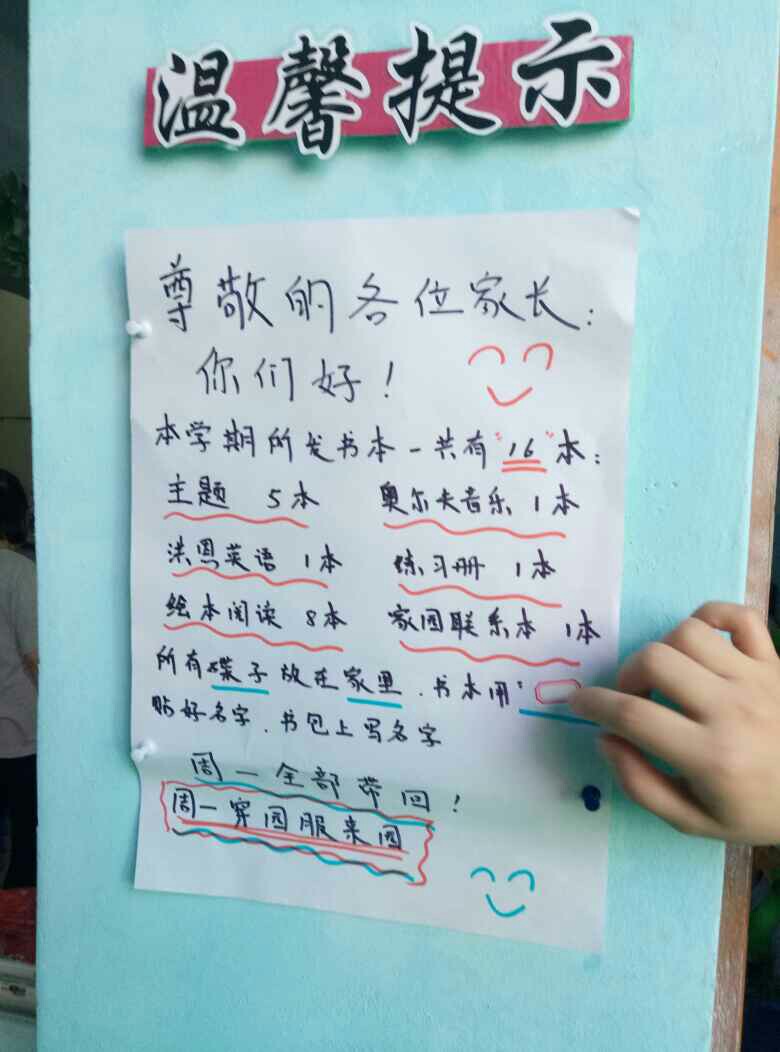 温馨提示
尊敬的各位家长：
你们好！
本学期所发书本一共有"16"本：
主题 5本 奥尔夫音乐 1本
洪恩英语 1本 练习册 1本
绘本阅读 8本 家园联系本 1本
所有碟子放在家里.书本用"
贴好名字.书包上写名字
周一全部带回！
周一穿园服来园